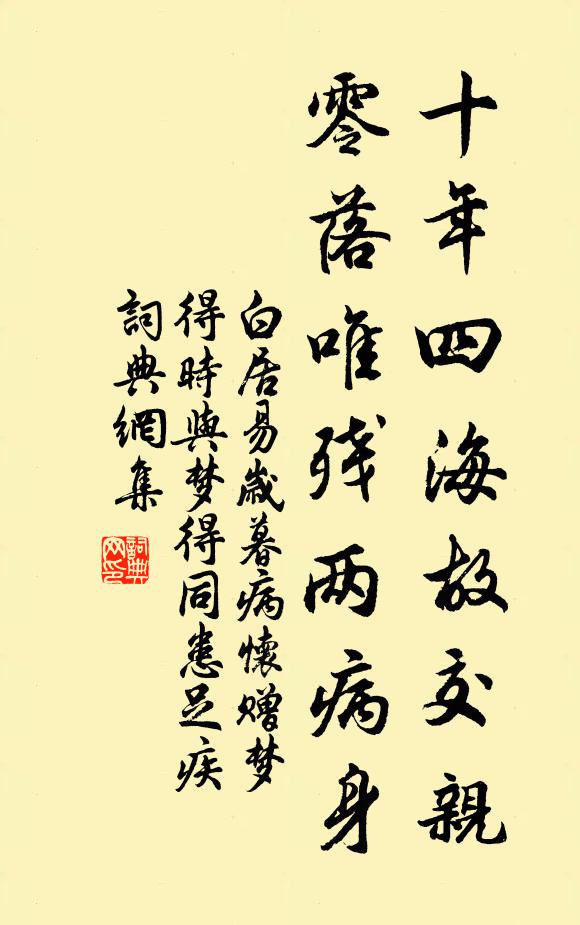 十年四海故交親
零落唯残两病身
白居易歲暮病懷贈梦
得時與梦得同患足疾
詞典網集
詞典
网印